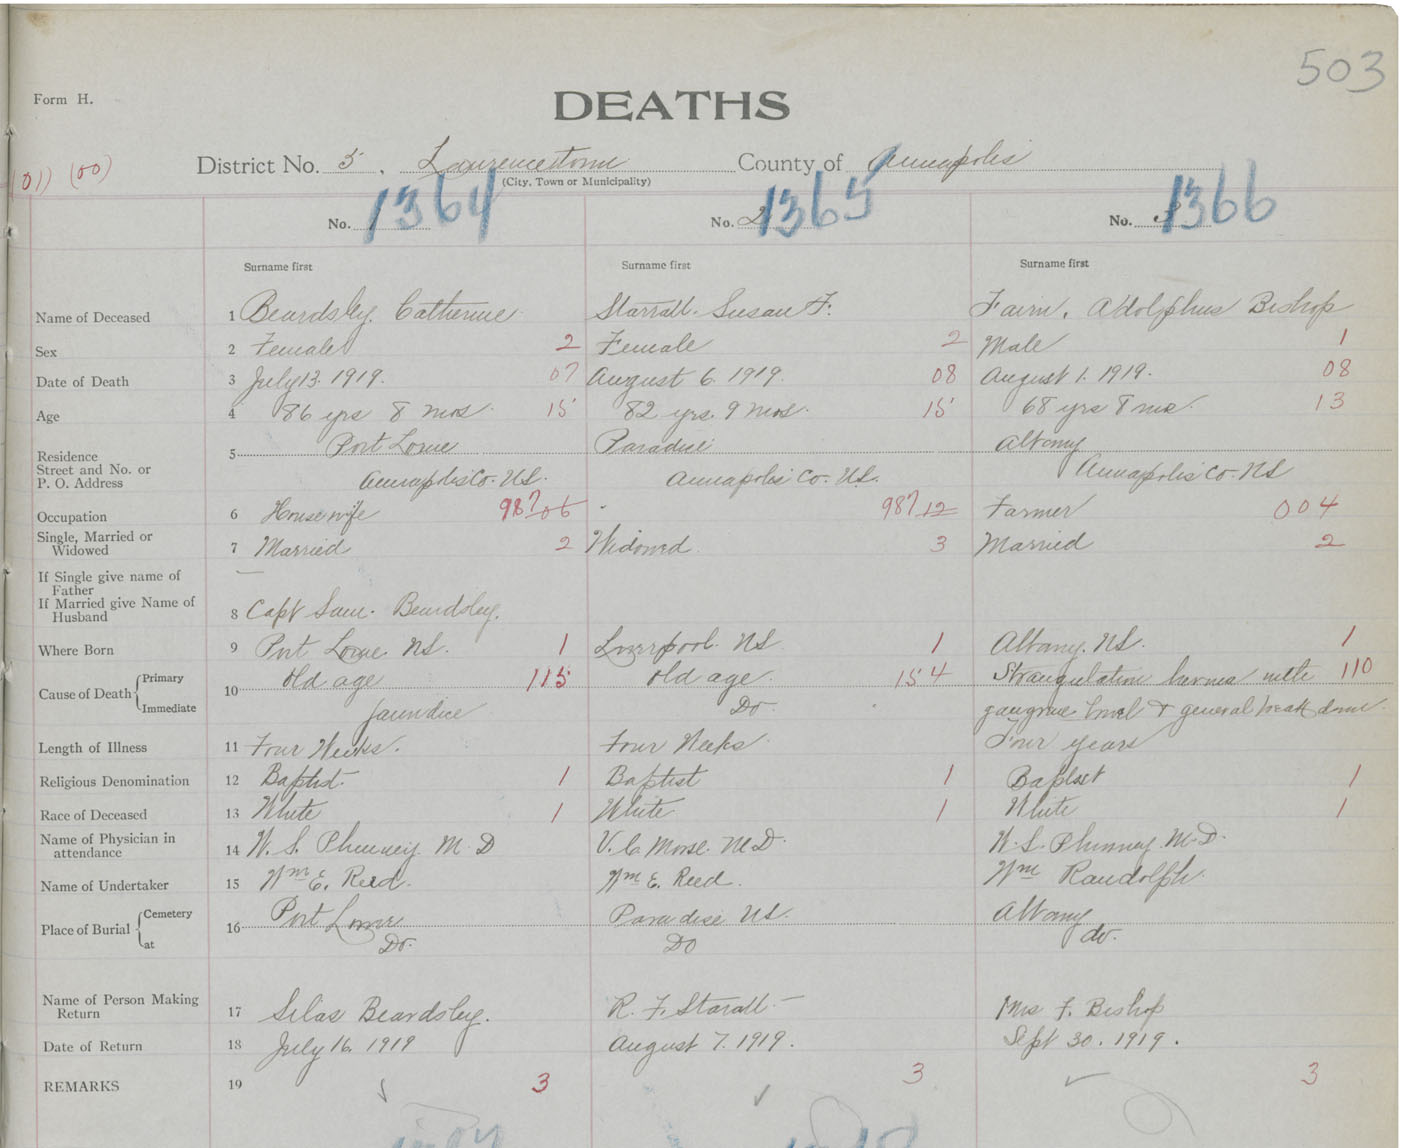 503
Form H.
DEATHS
District No. 5, Lawrencetown County of Annapolis
(City, Town or Municipality)
(01) (00)
No. 1364 No. 2 1365 No. 3 1366
Surname first Surname first Surname first
Name of Deceased 1 Beardsley, Catherine Starratt. Susan F. Fairn, Adolphus Bishop
Sex 2 Female 2 Female 2 Male 1
Date of Death 3 July 13. 1919. 07 August 6. 1919. 08 August 1. 1919. 08
Age 4 86 yrs 8 mos. 15 82 yrs. 9 mos. 15 68 yrs 8 mo. 13
Residence 5 Port Lorne Paradise Albany
Street and No. or
P. O. Address Annapolis Co. N.S. Annapolis Co. N.S. Annapolis Co. NS
Occupation 6 Housewife 987 06 " 987 12 Farmer 004
Single, Married or
Widowed 7 Married 2 Widowed 3 Married 2
If Single give name of
Father
If Married give Name of
Husband 8 Capt Sam. Beardsley.
Where Born 9 Port Lorne NS. 1 Liverpool NS 1 Albany. NS. 1
Cause of Death Primary 10 Old age 115 Old age. 154 Strangulation hernia with 110
Immediate Jaundice Do gangrene bowel & general break down
Length of Illness 11 Four Weeks. Four Weeks Four years
Religious Denomination 12 Baptist 1 Baptist 1 Baptist 1
Race of Deceased 13 White 1 White 1 White 1
Name of Physician in
attendance 14 W. S. Phinney M D V. C. Morse. M.D. W. S. Phinney M.D.
Name of Undertaker 15 Wm E. Reed. Wm E. Reed. Wm Randolph
Place of Burial Cemetery 16 Port Lorne Paradise NS. Albany
at Do. DO do.
Name of Person Making
Return 17 Silas Beardsley. R. F. Staratt Mrs F. Bishop
Date of Return 18 July 16. 1919 August 7. 1919. Sept 30. 1919.
REMARKS 19 3 3 3